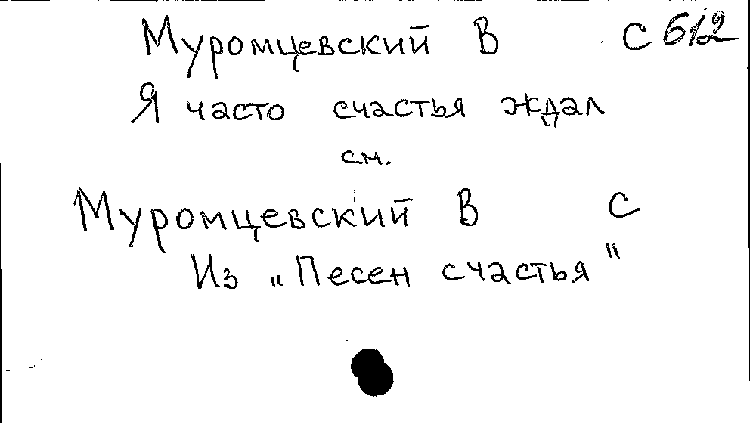 Муромцевский В С 612
Я часто счастья ждал
см.
Муромцевский В С
Из „Песен счастья"